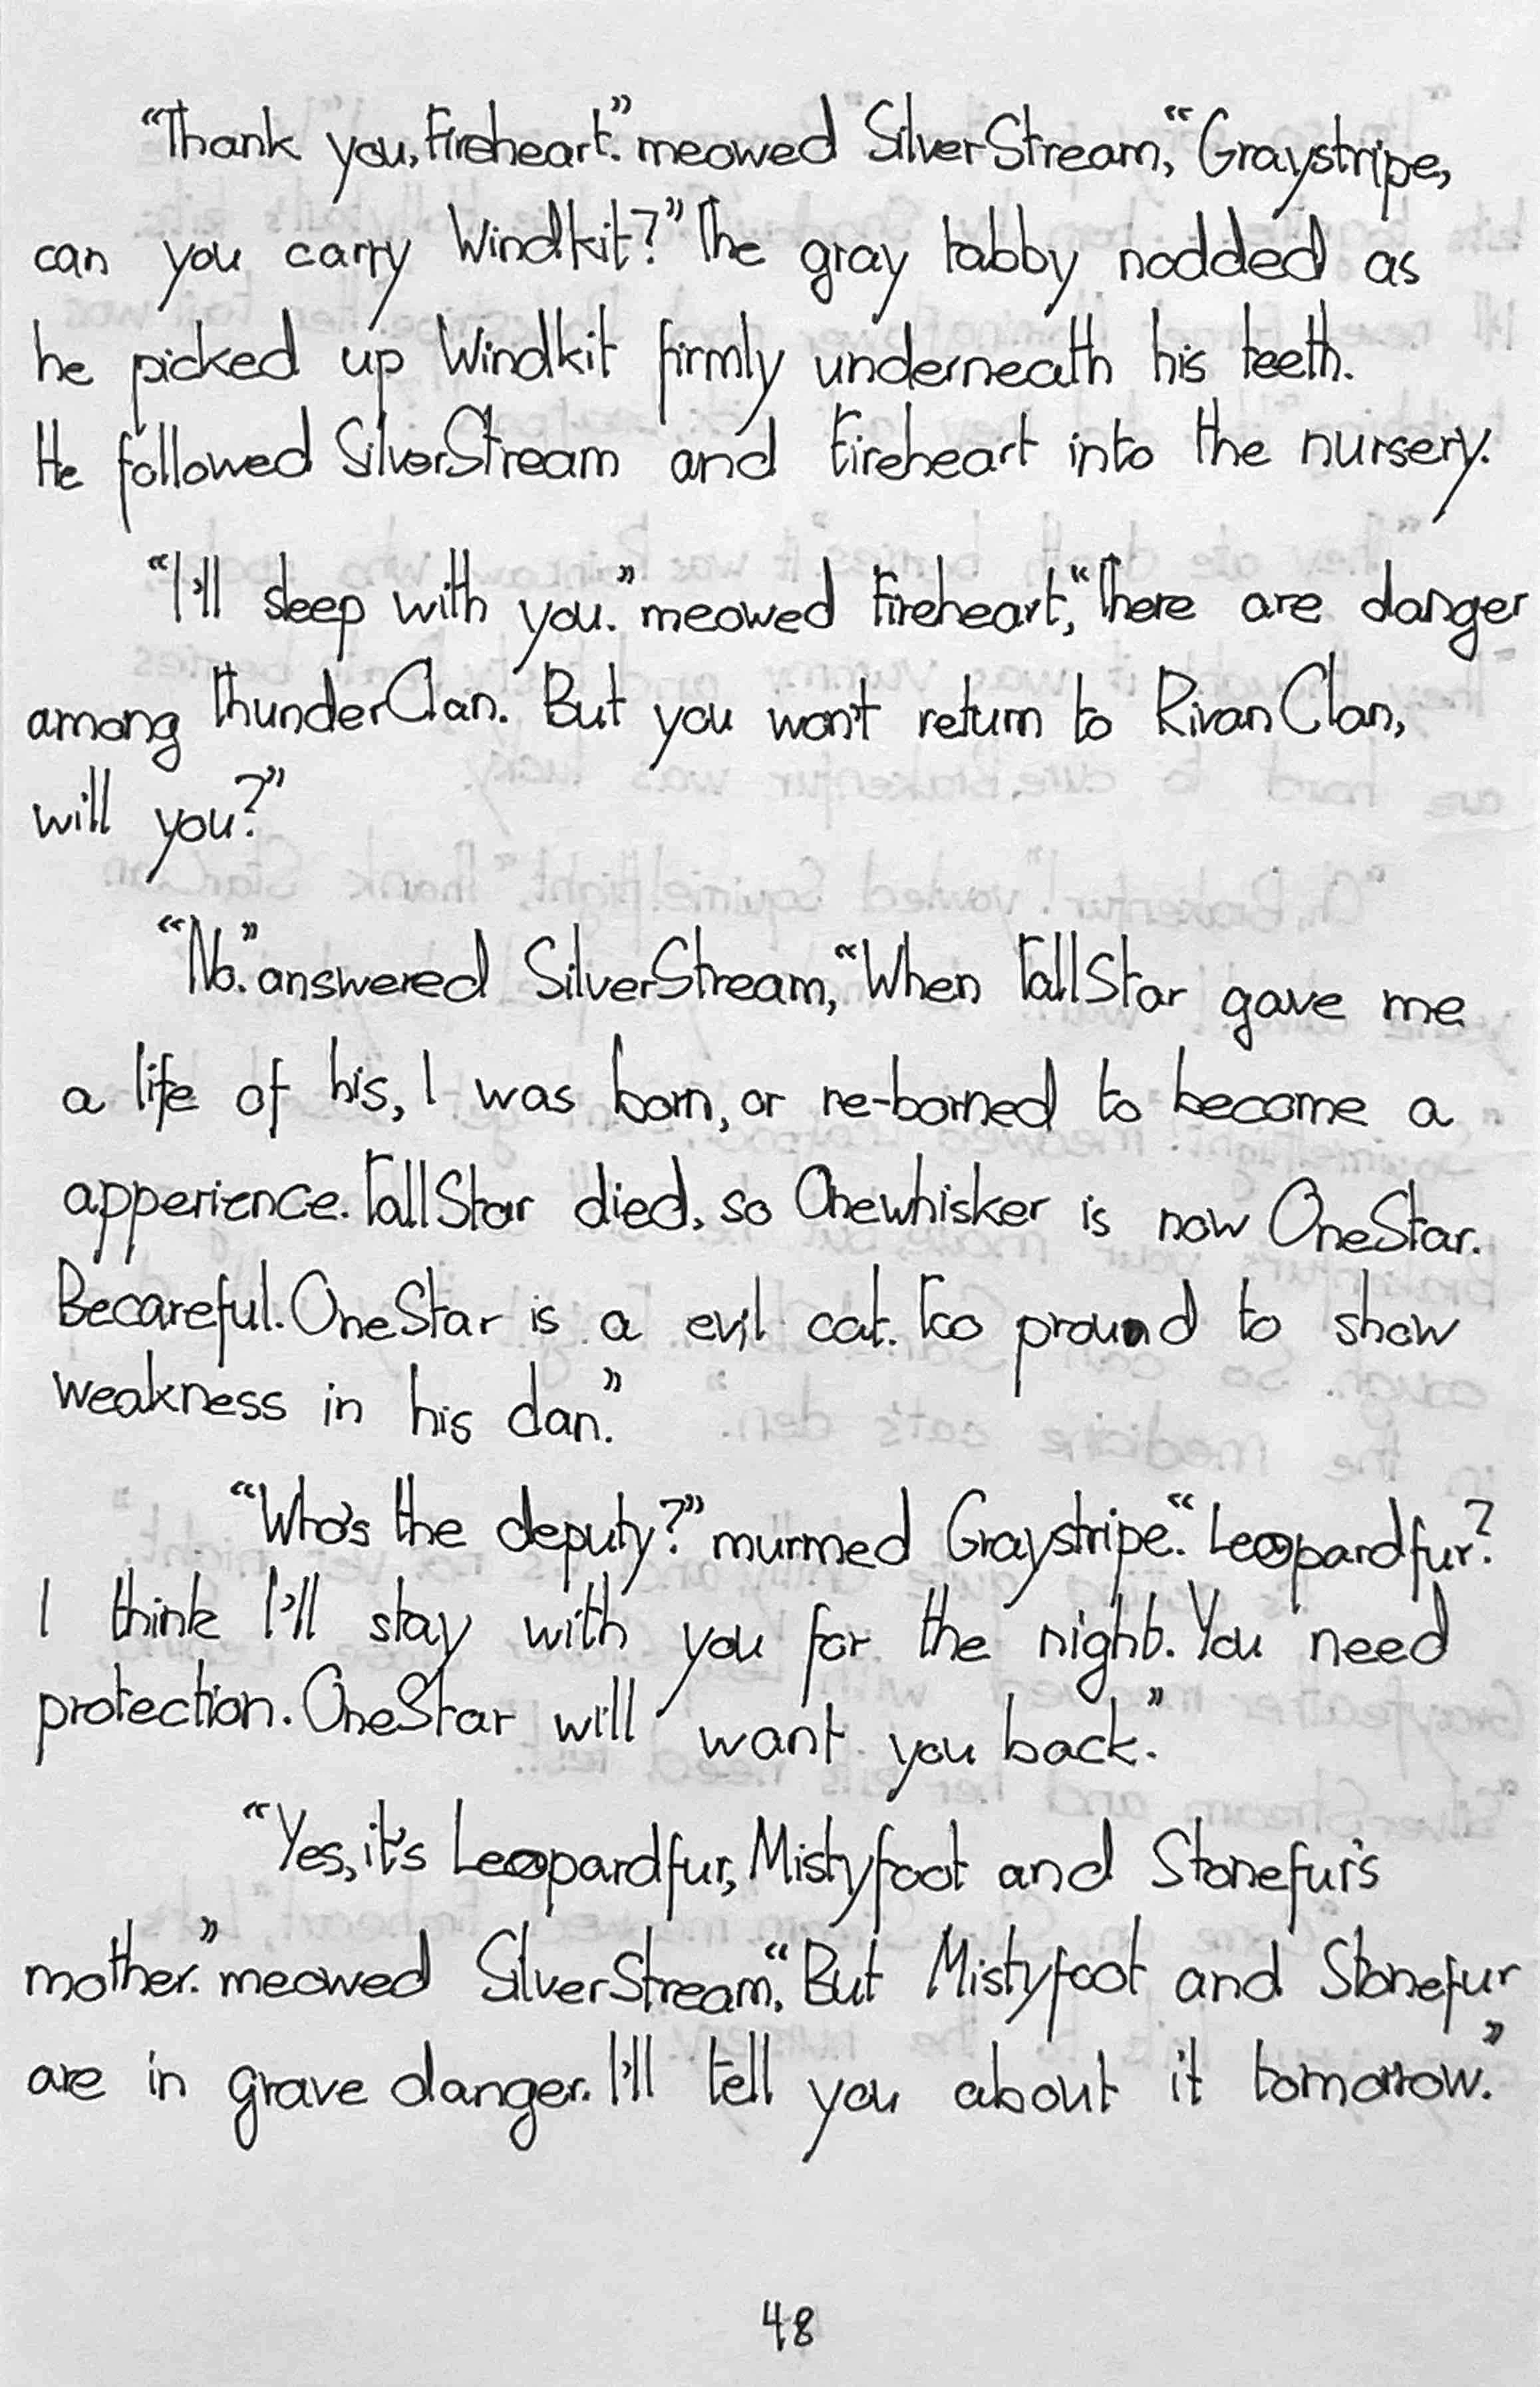 “Thank you, Fireheart.” meowed SilverStream, “Graystripe,
can you carry Windkit?” The gray tabby nodded as
he picked up Windkit firmly underneath his teeth.
He followed SilverStream and Fireheart into the nursery.
“I'll sleep with you.” meowed Fireheart, “There are danger
among ThunderClan. But you won't return to RivanClan,
will you?”
“No.” answered SilverStream, “When TallStar gave me
a life of his, I was born, or re-borned to become a
apperience. TallStar died, so Onewhisker is now OneStar.
Becareful. OneStar is a evil cat. Too pround to show
weakness in his clan.”
“Who's the deputy?” murmed Graystripe. “Leopardfur?
I think I'll stay with you for the night. You need
protection. OneStar will want you back.”
“Yes, it's Leopardfur, Mistyfoot and Stonefur's
mother.” meowed SilverStream. “But Mistyfoot and Stonefur
are in grave danger. I'll tell you about it tomorrow.”
48